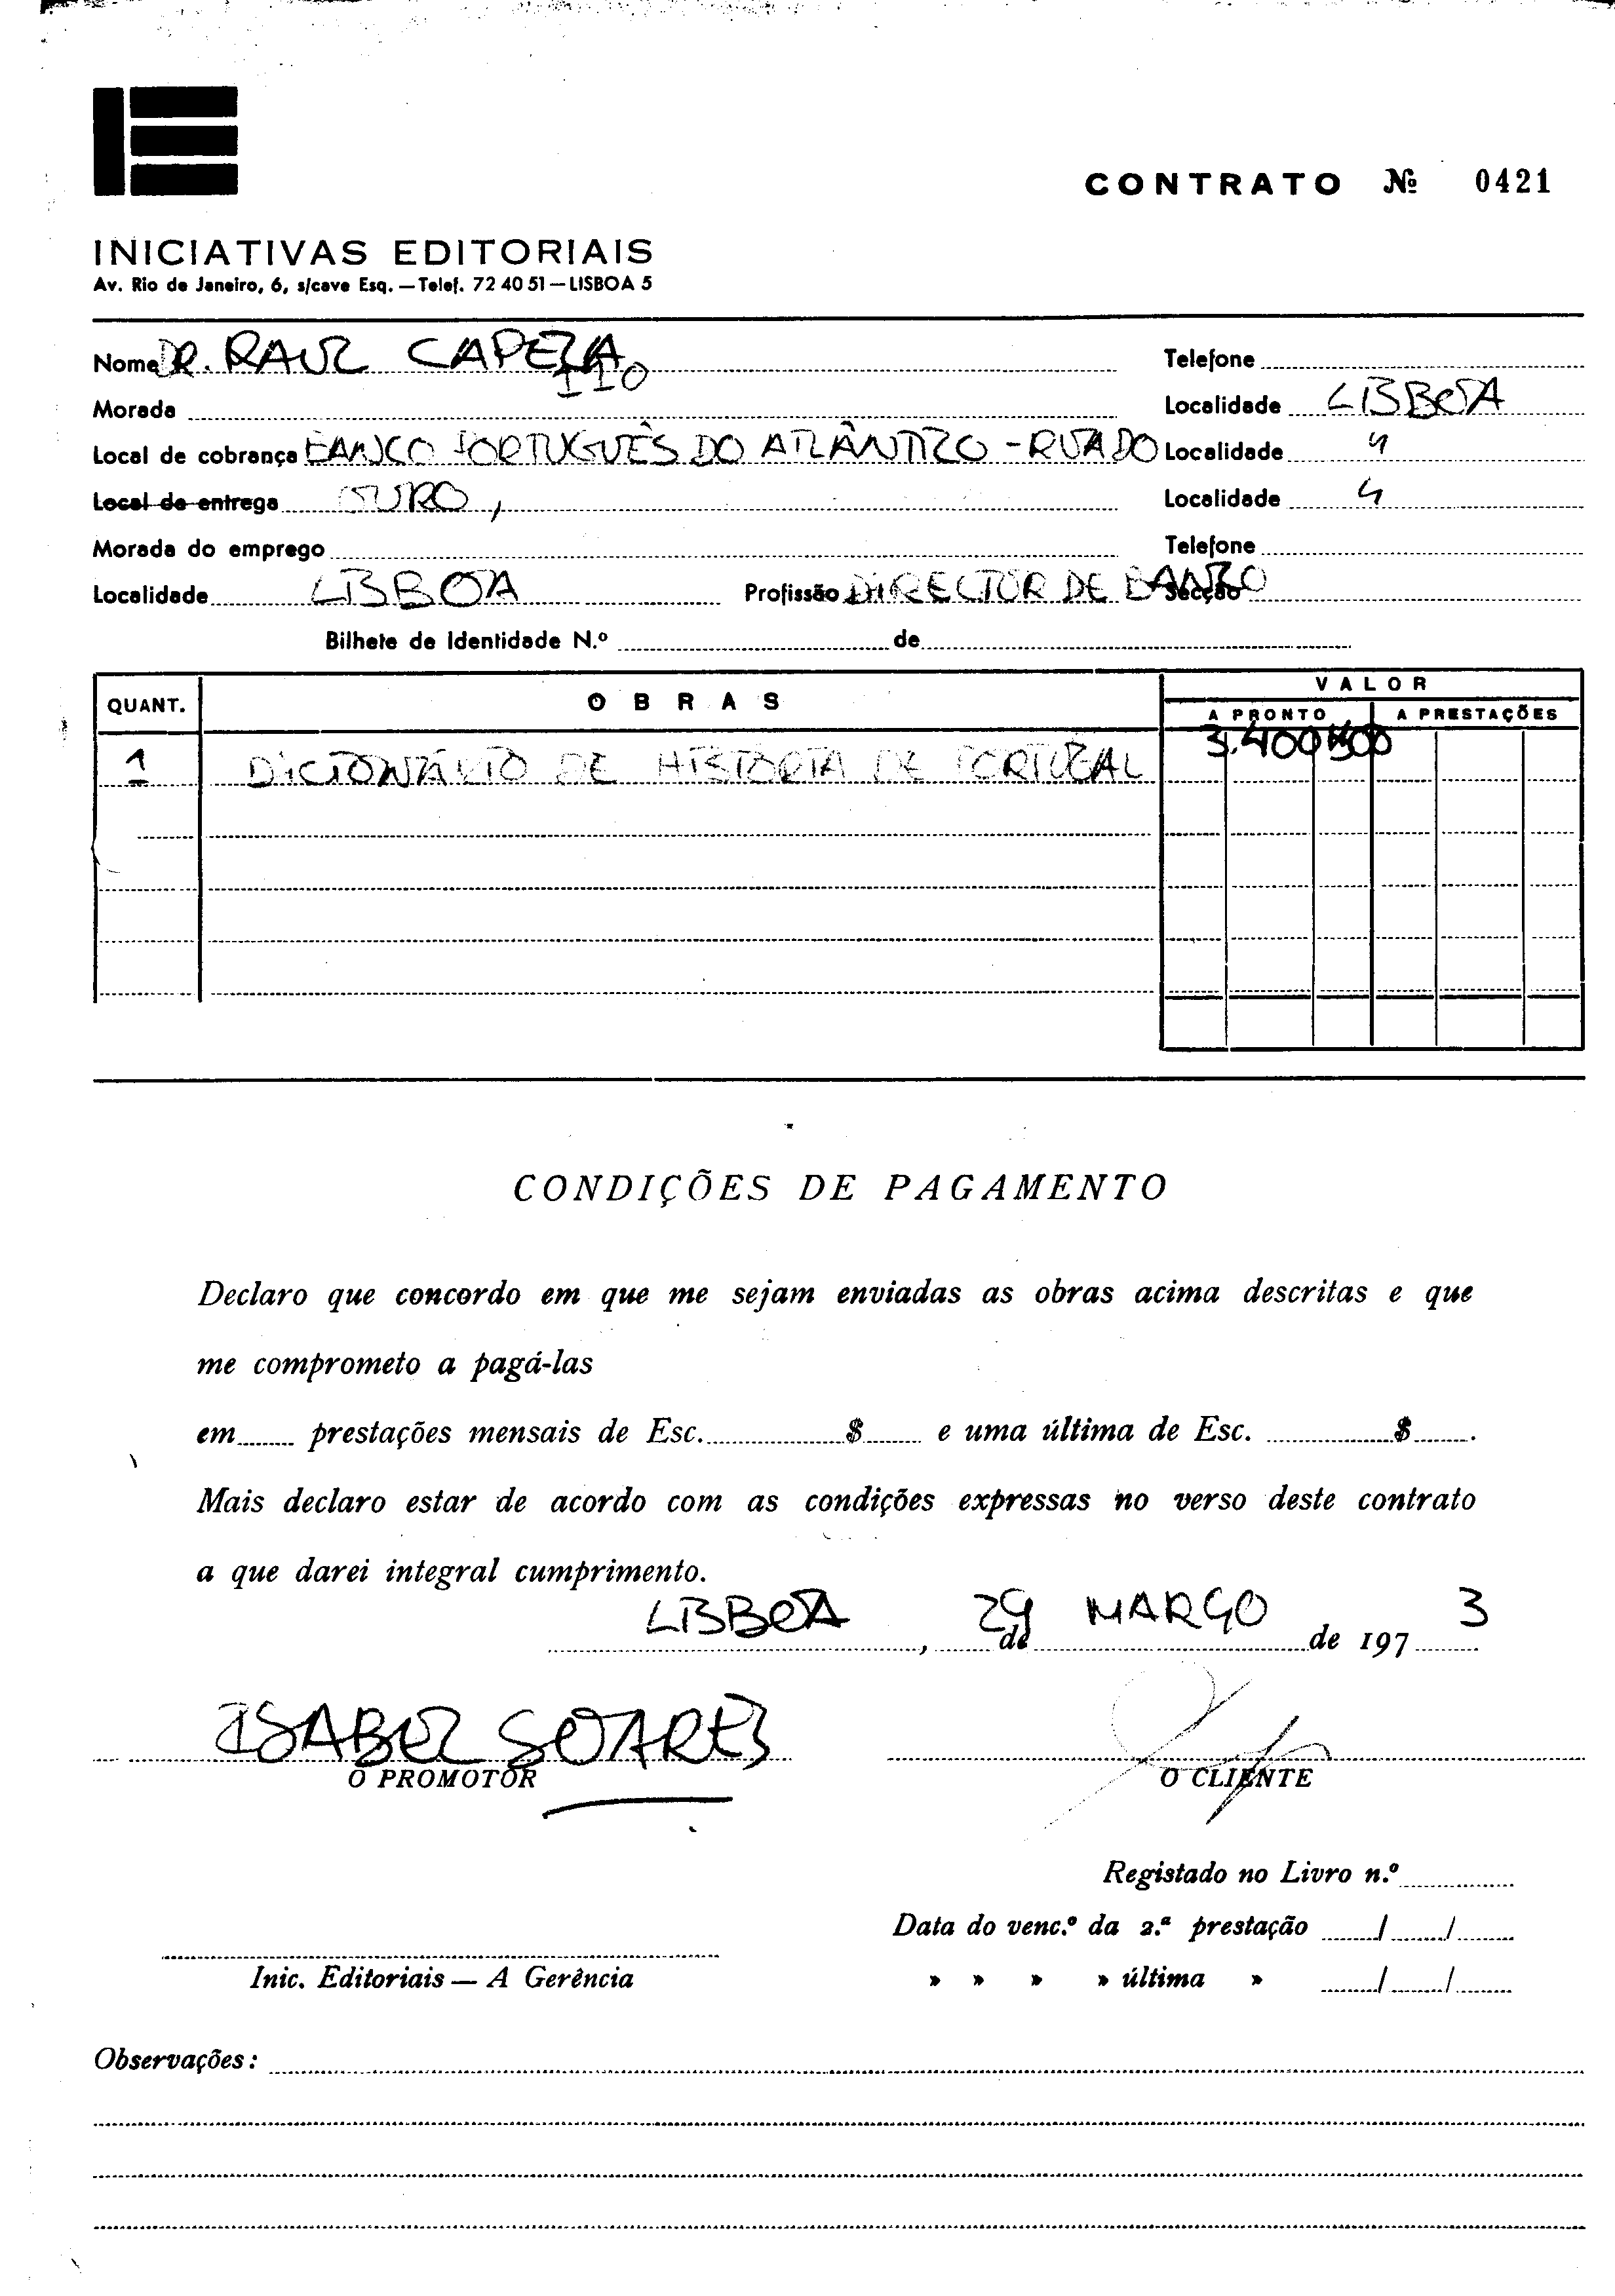 CONTRATO Nº 0421
INICIATIVAS EDITORIAIS
Av. Rio de Janeiro, 6, s/cave Esq. — Telef. 72 40 51 — LISBOA 5
Nome DR. RAUL CAPELA Telefone
110
Morada Localidade LISBOA
Local de cobrança BANCO PORTUGUÊS DO ATLÂNTICO - RUA DO Localidade "
Local de entrega OURO, Localidade "
Morada do emprego Telefone
Localidade LISBOA Profissão DIRECTOR DE BANCO Secção
Bilhete de Identidade N.º de
QUANT. OBRAS VALOR
A PRONTO A PRESTAÇÕES
1 DICIONÁRIO DE HISTÓRIA DE PORTUGAL 3.400$00
CONDIÇÕES DE PAGAMENTO
Declaro que concordo em que me sejam enviadas as obras acima descritas e que
me comprometo a pagá-las
em prestações mensais de Esc. $ e uma última de Esc. $ .
Mais declaro estar de acordo com as condições expressas no verso deste contrato
a que darei integral cumprimento.
LISBOA , 29 de MARÇO de 197 3
ISABEL SOARES
O PROMOTOR O CLIENTE
Registado no Livro n.º
Data do venc.º da 2.ª prestação / /
Inic. Editoriais — A Gerência » » » » última » / /
Observações :